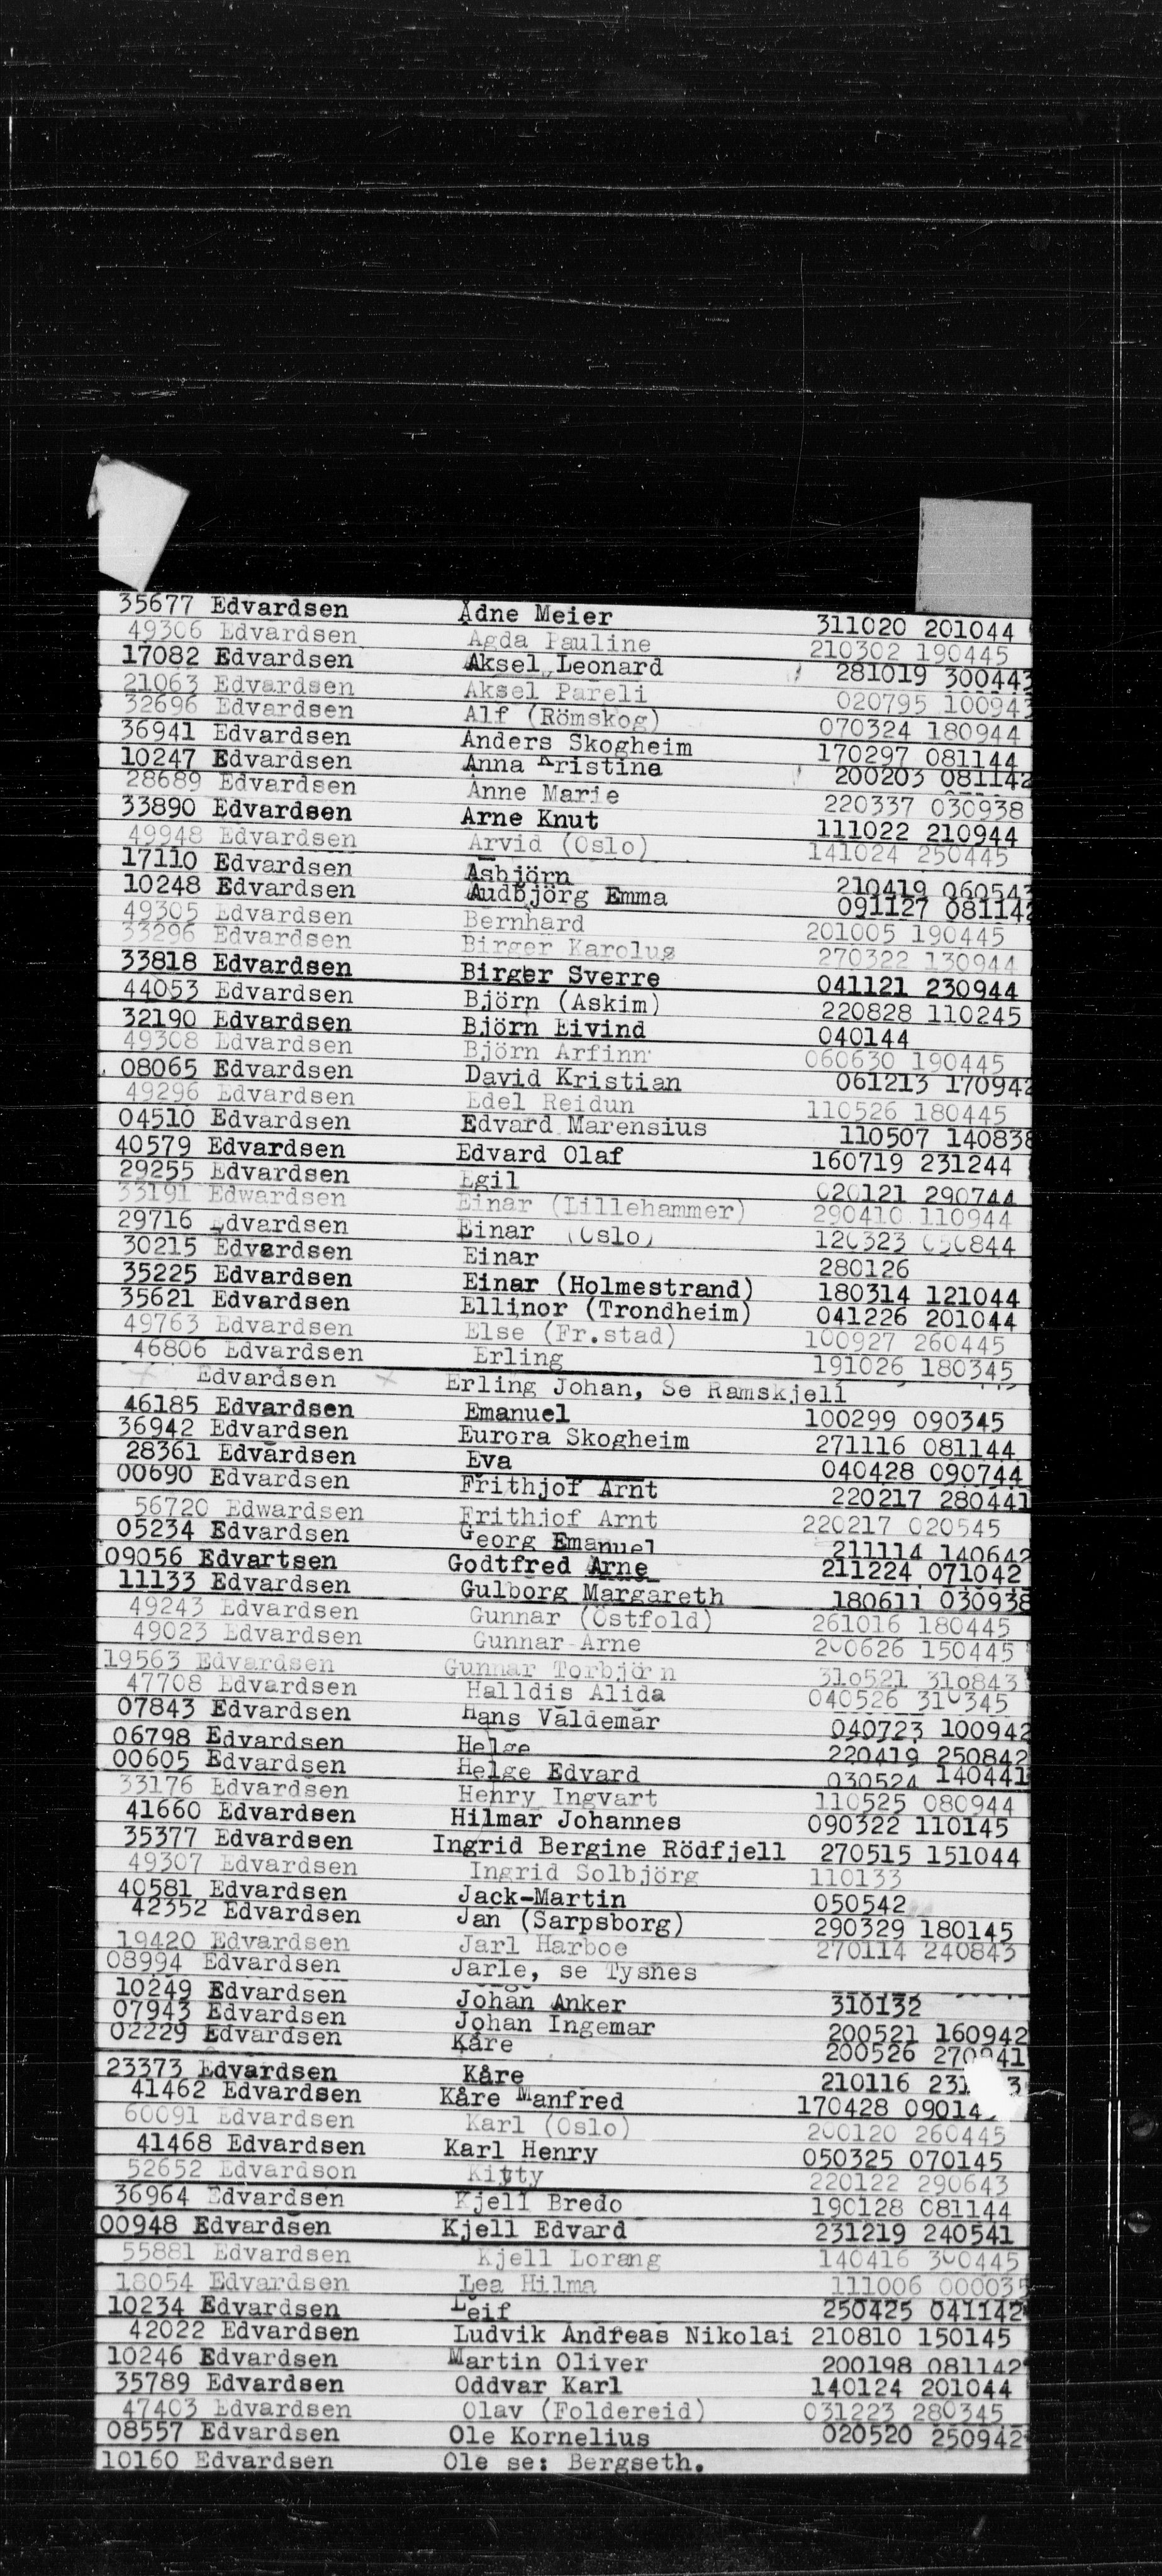 35677 Edvardsen Ådne Meier 311020 201044
49306 Edvardsen Agda Pauline 210302 190445
17082 Edvardsen Aksel Leonard 281019 300443
21063 Edvardsen Aksel Pareli 020795 100943
32696 Edvardsen Alf (Römskog) 070324 180944
36941 Edvardsen Anders Skogheim 170297 081144
10247 Edvardsen Anna Kristine 200203 081142
28689 Edvardsen Anne Marie 220337 030938
33890 Edvardsen Arne Knut 111022 210944
49948 Edvardsen Arvid (Oslo) 141024 250445
17110 Edvardsen Asbjörn 210419 060543
10248 Edvardsen Audbjörg Emma 091127 081142
49305 Edvardsen Bernhard 201005 190445
33296 Edvardsen Birger Karolus 270322 130944
33818 Edvardsen Birger Sverre 041121 230944
44053 Edvardsen Björn (Askim) 220828 110245
32190 Edvardsen Björn Eivind 040144
49308 Edvardsen Björn Arfinn 060630 190445
08065 Edvardsen David Kristian 061213 170942
49296 Edvardsen Edel Reidun 110526 180445
04510 Edvardsen Edvard Marensius 110507 140838
40579 Edvardsen Edvard Olaf 160719 231244
29255 Edvardsen Egil 020121 290744
33191 Edwardsen Einar (Lillehammer) 290410 110944
29716 Edvardsen Einar (Oslo) 120323 050844
30215 Edvardsen Einar 280126
35225 Edvardsen Einar (Holmestrand) 180314 121044
35621 Edvardsen Ellinor (Trondheim) 041226 201044
49763 Edvardsen Else (Fr.stad) 100927 260445
46806 Edvardsen Erling 191026 180345
Edvardsen Erling Johan, Se Ramskjell
46185 Edvardsen Emanuel 100299 090345
36942 Edvardsen Eurora Skogheim 271116 081144
28361 Edvardsen Eva 040428 090744
00690 Edvardsen Frithjof Arnt 220217 280441
56720 Edwardsen Frithjof Arnt 220217 020545
05234 Edvardsen Georg Emanuel 211114 140642
09056 Edvartsen Godtfred Arne 211224 071042
11133 Edvardsen Gulborg Margareth 180611 030938
49243 Edvardsen Gunnar (Östfold) 261016 180445
49023 Edvardsen Gunnar Arne 200626 150445
19563 Edvardsen Gunnar Torbjörn 310521 310843
47708 Edvardsen Halldis Alida 040526 310345
07843 Edvardsen Hans Valdemar 040723 100942
06798 Edvardsen Helge 220419 250842
00605 Edvardsen Helge Edvard 030524 140441
33176 Edvardsen Henry Ingvart 110525 080944
41660 Edvardsen Hilmar Johannes 090322 110145
35377 Edvardsen Ingrid Bergine Rödfjell 270515 151044
49307 Edvardsen Ingrid Solbjörg 110133
40581 Edvardsen Jack-Martin 050542
42352 Edvardsen Jan (Sarpsborg) 290329 180145
19420 Edvardsen Jarl Harboe 270114 240843
08994 Edvardsen Jarle, se Tysnes
10249 Edvardsen Johan Anker 310132
07943 Edvardsen Johan Ingemar 200521 160942
02229 Edvardsen Kåre 200526
23373 Edvardsen Kåre 210116
41462 Edvardsen Kåre Manfred 170428
60091 Edvardsen Karl (Oslo) 200120 260445
41468 Edvardsen Karl Henry 050325 070145
52652 Edvardson Kitty 220122 290643
36964 Edvardsen Kjell Bredo 190128 081144
00948 Edvardsen Kjell Edvard 231219 240541
55881 Edvardsen Kjell Lorang 140416 300445
18054 Edvardsen Lea Hilma 111006 000035
10234 Edvardsen Leif 250425 041142
42022 Edvardsen Ludvik Andreas Nikolai 210810 150145
10246 Edvardsen Martin Oliver 200198 081142
35789 Edvardsen Oddvar Karl 140124 201044
47403 Edvardsen Olav (Foldereid) 031223 280345
08557 Edvardsen Ole Kornelius 020520 250942
10160 Edvardsen Ole se: Bergseth.